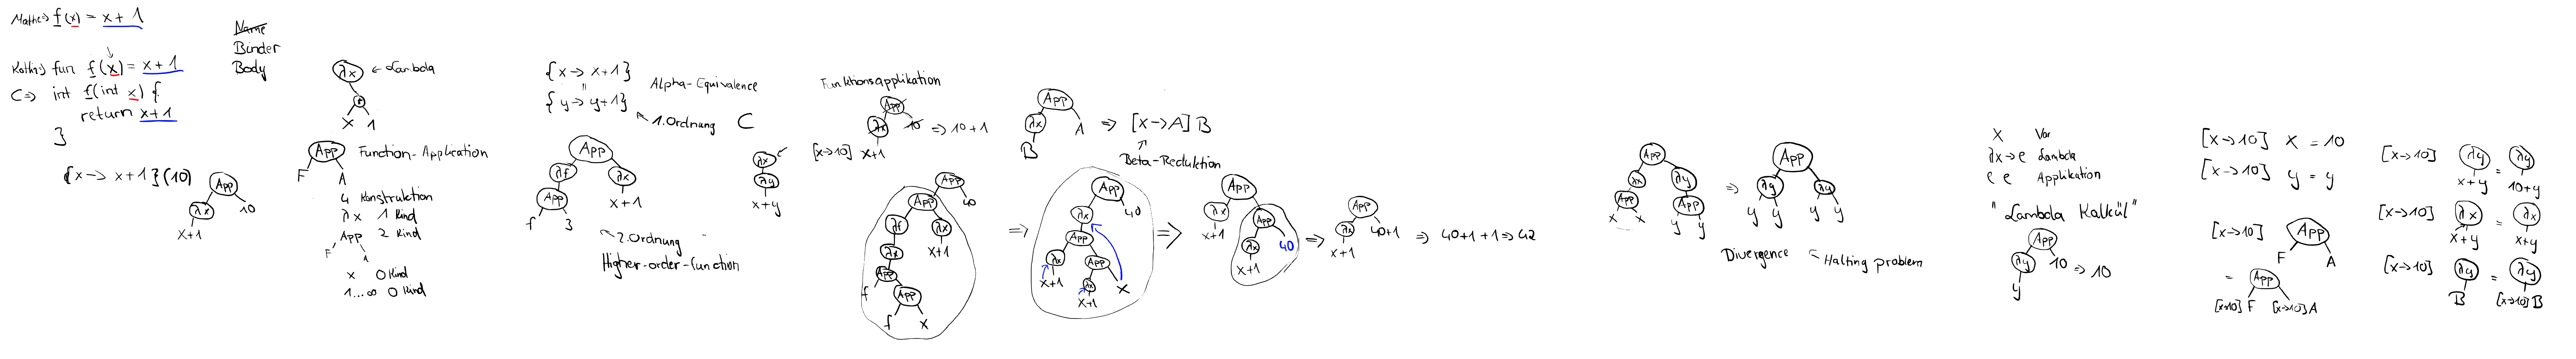 Mathe⇒ f(x) = x+1
Name
Binder
Body
Kotlin⇒ fun f(x) = x+1
C⇒ int f(int x) {
return x+1
}
{x → x+1}(10)
App
λx
10
x+1
λx ← Lambda
+
x 1
App Function-Application
F A
4 Konstruktion
λx 1 Kind
App 2 Kind
F A
x 0 Kind
1...∞ 0 Kind
{x → x+1}
=
{y → y+1}
Alpha-Equivalence
1. Ordnung C
App
λf λx
App x+1
f 3
2. Ordnung
Higher-order-function
λx
λy
x+y
Funktionsapplikation
App
λx 10 ⇒ 10+1
[x→10] x+1
App
λx A
B
⇒ [x→A] B
Beta-Reduktion
App
App 40
λf λx
λx x+1
App
f App
f x
⇒
App
λx 40
App
λx App
x+1 λx x
x+1
⇒
App
λx App
x+1 λx 40
x+1
⇒
App
λx 40+1
x+1
⇒ 40+1+1 ⇒ 42
App
λx λy
App App
x x y y
⇒
App
λy λy
y y y y
Divergence ← Halting problem
x Var
λx→e Lambda
e e Applikation
"Lambda Kalkül"
App
λy 10 ⇒ 10
y
[x→10] x = 10
[x→10] y = y
[x→10] App
F A
= App
[x→10] F [x→10] A
[x→10] λy = λy
x+y 10+y
[x→10] λx = λx
x+y x+y
[x→10] λy = λy
B [x→10] B